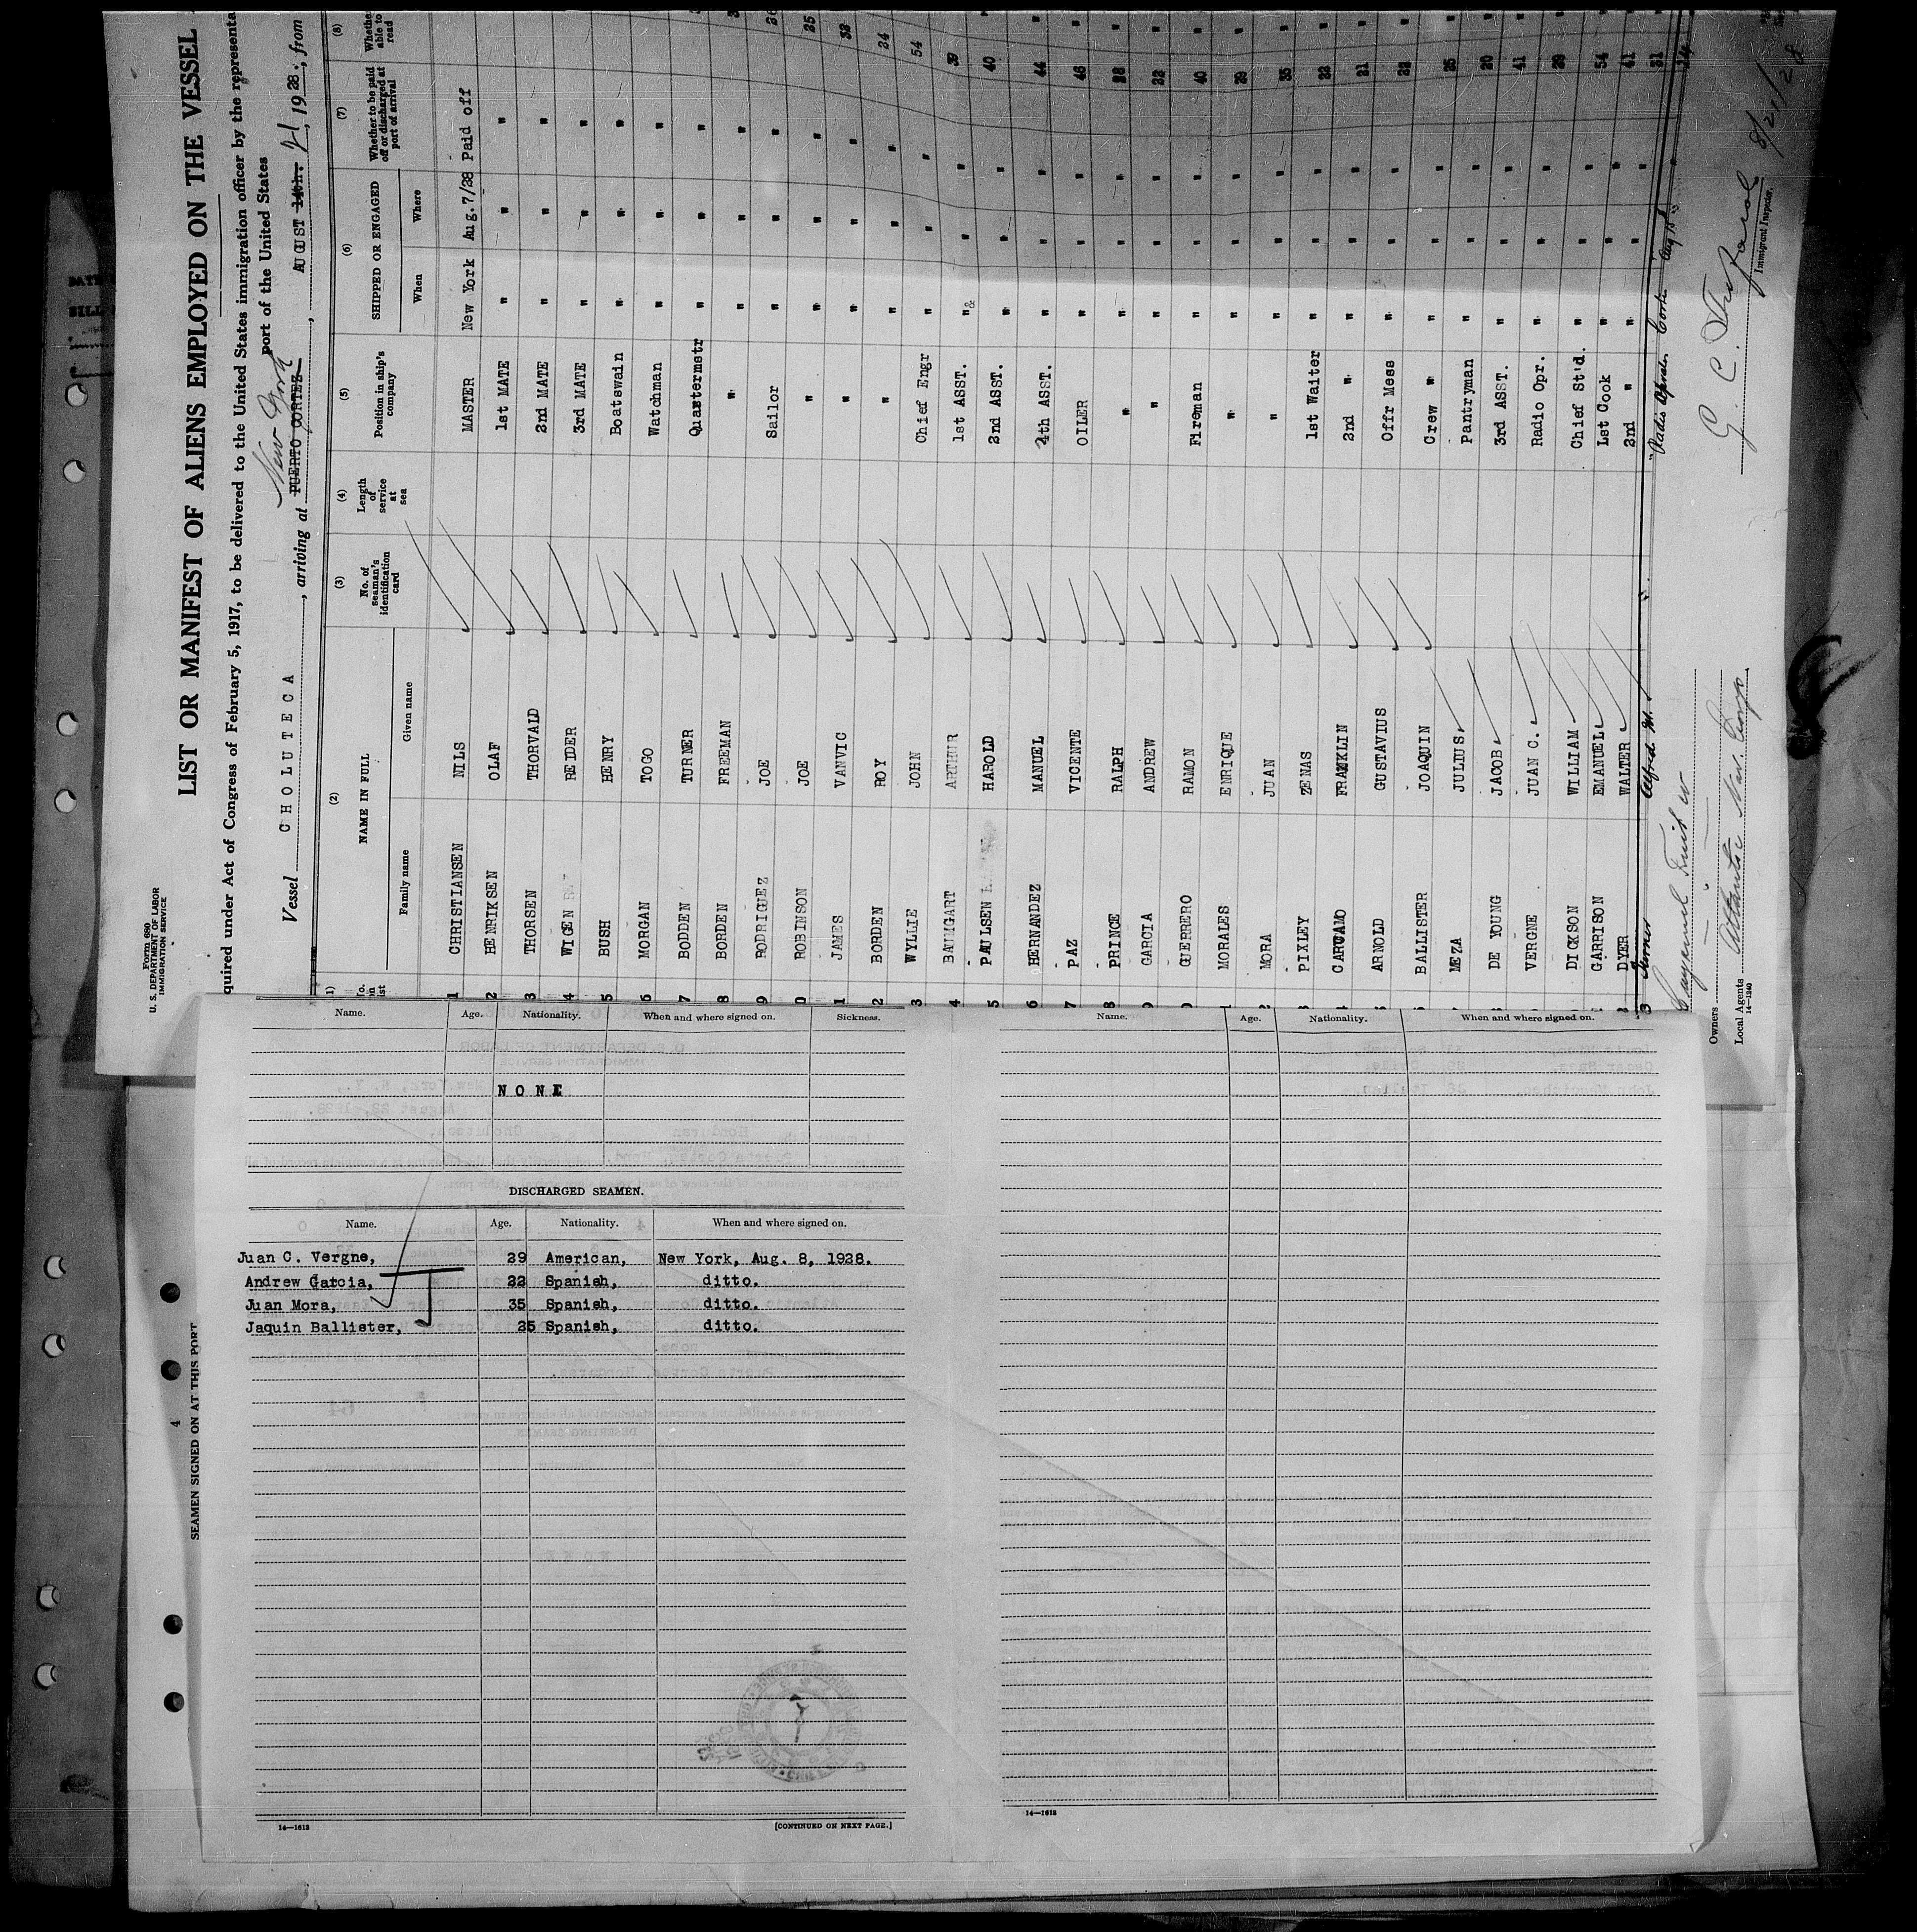 Form 680
U. S. DEPARTMENT OF LABOR
IMMIGRATION SERVICE
LIST OR MANIFEST OF ALIENS EMPLOYED ON THE VESSEL
quired under Act of Congress of February 5, 1917, to be delivered to the United States immigration officer by the representa
port of the United States
New York
Vessel CHOLUTECA, arriving at PUERTO CORTEZ, AUGUST 14th. 21, 1928., from
(2) (3) (4) (5) (6) (7) (8)
NAME IN FULL
Family name Given name
No. of seaman's identification card
Length of service at sea
Position in ship's company
SHIPPED OR ENGAGED
When Where
Whether to be paid off or discharged at port of arrival
Whether able to read
1 CHRISTIANSEN NILS MASTER New York Aug.7/28 Paid off
2 HENRIKSEN OLAF 1st MATE " " "
3 THORSEN THORVALD 2nd MATE " " "
4 WIGEN REIDER 3rd MATE " " "
5 BUSH HENRY Boatswain " " "
6 MORGAN TOGO Watchman " " "
7 BODDEN TURNER Quartermstr " " "
8 BORDEN FREEMAN " " " "
9 RODRIGUEZ JOE Sailor " " " 26
0 ROBINSON JOE " " " " 25
1 JAMES VANVIC " " " "
2 BORDEN ROY " " " " 24
3 WYLLIE JOHN Chief Engr " " " 54
4 BAUMGART ARTHUR 1st ASST. " " " 39
5 PAULSEN HAROLD 2nd ASST. " " " 40
6 HERNANDEZ MANUEL 4th ASST. " " " 44
7 PAZ VICENTE OILER " " " 46
8 PRINCE RALPH " " " " 28
9 GARCIA ANDREW " " " " 22
0 GUERRERO RAMON Fireman " " " 40
1 MORALES ENRIQUE " " " " 29
2 MORA JUAN " " " " 35
3 PIXLEY ZENAS 1st Waiter " " " 22
4 CARCAMO FRANKLIN 2nd " " " " 21
5 ARNOLD GUSTAVIUS Offr Mess " " " 22
6 BALLISTER JOAQUIN Crew " " " " 25
7 MEZA JULIUS Pantryman " " " 20
8 DE YOUNG JACOB 3rd ASST. " " " 41
9 VERGNE JUAN C. Radio Opr. " " " 29
0 DICKSON WILLIAM Chief St'd. " " " 54
1 GARRISON EMANUEL 1st Cook " " " 41
2 DYER WALTER 2nd " " " " 31
3 Turner Alfred M. Radio Oprator Cortez Aug 15 24
Cuyamel Fruit Co
Owners
Local Agents Atlantic Nav. Corp.
14—1240
G. C.
Immigrant Inspector.
8/21/28
SEAMEN SIGNED ON AT THIS PORT
4
Name. Age. Nationality. When and where signed on. Sickness.
NONE
DISCHARGED SEAMEN.
Name. Age. Nationality. When and where signed on.
Juan C. Vergne, 29 American, New York, Aug. 8, 1928.
Andrew Garcia, 22 Spanish, ditto.
Juan Mora, 35 Spanish, ditto.
Jaquin Ballister, 25 Spanish, ditto.
14—1612
[CONTINUED ON NEXT PAGE.]
Name. Age. Nationality. When and where signed on.
14—1612